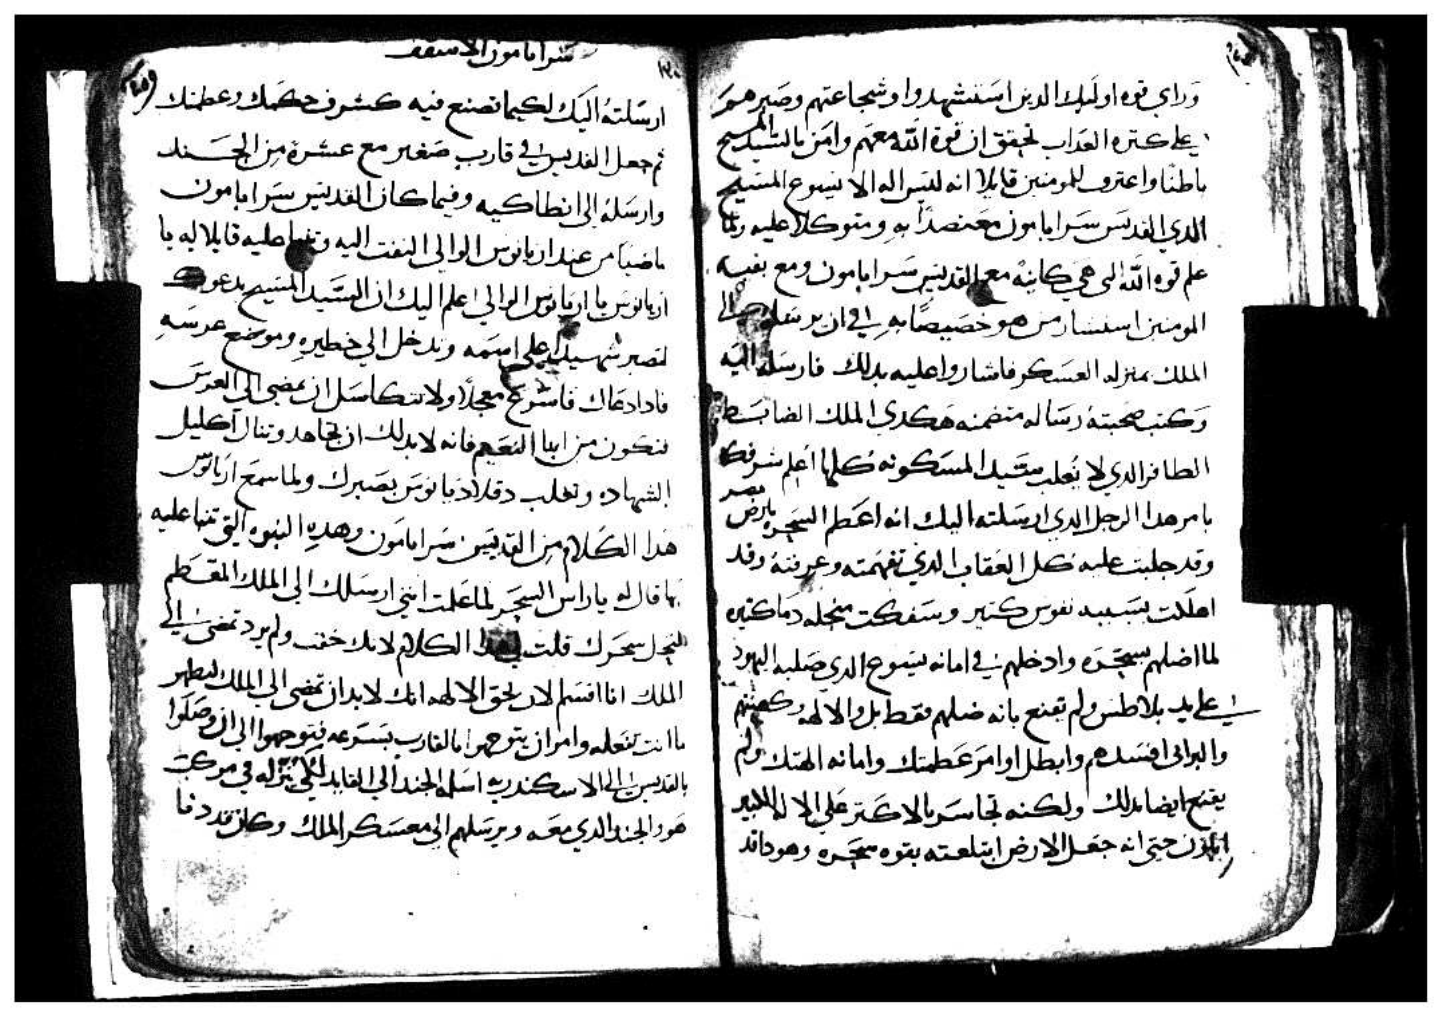 وراي قوه اوليك الدين استشهدوا وشجاعتهم وصبرهم
علي كتره العداب تحقق ان قوة الله معهم وامن بالسيد المسيح
باطنا واعترف للمومنين قايلا انه ليس اله الا يسوع المسيح
الدي القديس سرابامون معتضدا به ومتوكلا عليه ولما
علم قوه الله التي هي كاينه مع القديس سرابامون ومع بقيه
المومنين استشار من هو خصيصا به في ان يرسله الي
الملك بمنزله العسكر فاشاروا عليه بدلك فارسله اليه
وكتب صحبته رساله متضمنه هكدي الملك الضابط
الظافر الدي لا يغلب سيد المسكونه كلها اعلم شرفك
بامر هدا الرجل الدي ارسلته اليك انه اعظم السحره بارض مصر
وقد جلبت عليه كل العقاب الدي تفهمته وعرفته وقد
اهلكت بسببه نفوس كتير وسفكت منجله دما كتيره
لما اضلهم بسحره وادخلهم في امانه يسوع الدي صلبه اليهود
علي يد بلاطس ولم يقنع بانه ضلهم فقط بل والالهه وكهنتهم
والبرابي افسدهم وابطل اوامر عظمتك وامانه الهتك ولم
يقنع ايضا بدلك ولكنه تجاسر بالاكتر علي الاله الكبير
ابللون حتي انه جعل الارض ابتلعته بقوه سحره وهودا قد
سرابامون الاسقف
١٣٠
ارسلته اليك لكيما تصنع فيه كشرف حكمك وعظمتك
تم جعل القديس في قارب صغير مع عشرة من الجند
وارسله الي انطاكيه وفيما كان القديس سرابامون
ماضيا من عند اريانوس الوالي التفت اليه وتنبا عليه قايلا له يا
اريانوس يا اريانوس الوالي اعلم اليك ان السيد المسيح يدعوك
لتصير شهيدا علي اسمه وتدخل الي حظيره وموضع عرسه
فادا دعاك فاسرع معجلا ولا تتكاسل ان تمضي الي العرس
فتكون من ابنا النعيم فانه لابد لك ان تجاهد وتنال اكليل
الشهاده وتغلب دقلاديانوس بصبرك ولما سمع اريانوس
هدا الكلام من القديس سرابامون وهده النبوه التي تنبا عليه
بها قال له ياراس السحره لما علمت انني ارسلك الي الملك المعظم
سحرك قلت هدا الكلام لانك خفت ولم يرد تمضي الي
الملك انا اقسم لان بحق الالهه انك لابد ان تمضي الي الملك ليظهر
ما انت تفعله وامر ان يتوجهوا بالقارب بسرعه فتوجهوا الي ان وصلوا
بالقديس الي الاسكندريه اسلمه الجند الي القايد لكي ينزله في مركب
هو والجند الدي معه ويرسلهم الي معسكر الملك وكان قد دفا